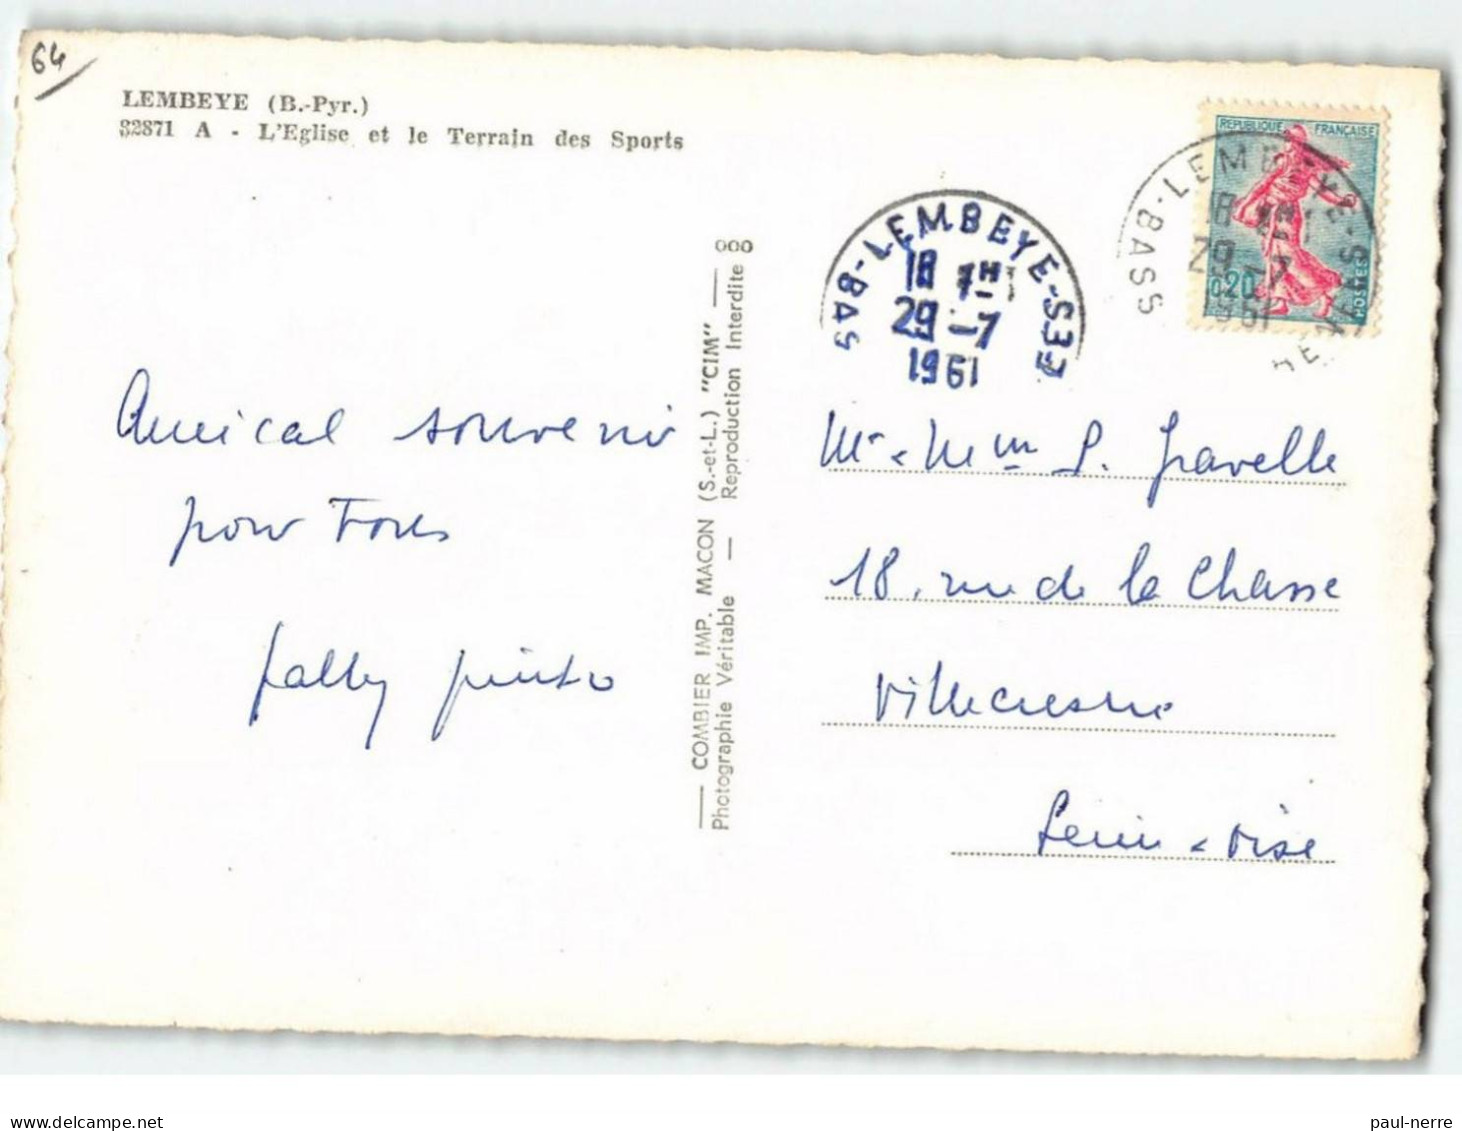 64
LEMBEYE (B.-Pyr.)
32871 A - L'Eglise et le Terrain des Sports
REPUBLIQUE FRANÇAISE
0,20
POSTES
LEMBEYE
18 H
29-7
1961
BASS
LEMBEYE
18 H
29-7
1961
BAS
Amical souvenir
pour Tous
COMBIER IMP. MACON (S.-et-L.) "CIM"
Photographie Véritable — Reproduction Interdite
000
Mr & Mme P. Gravelle
18, rue de la Chasse
Villecresne
Seine & Oise
paul-nerre